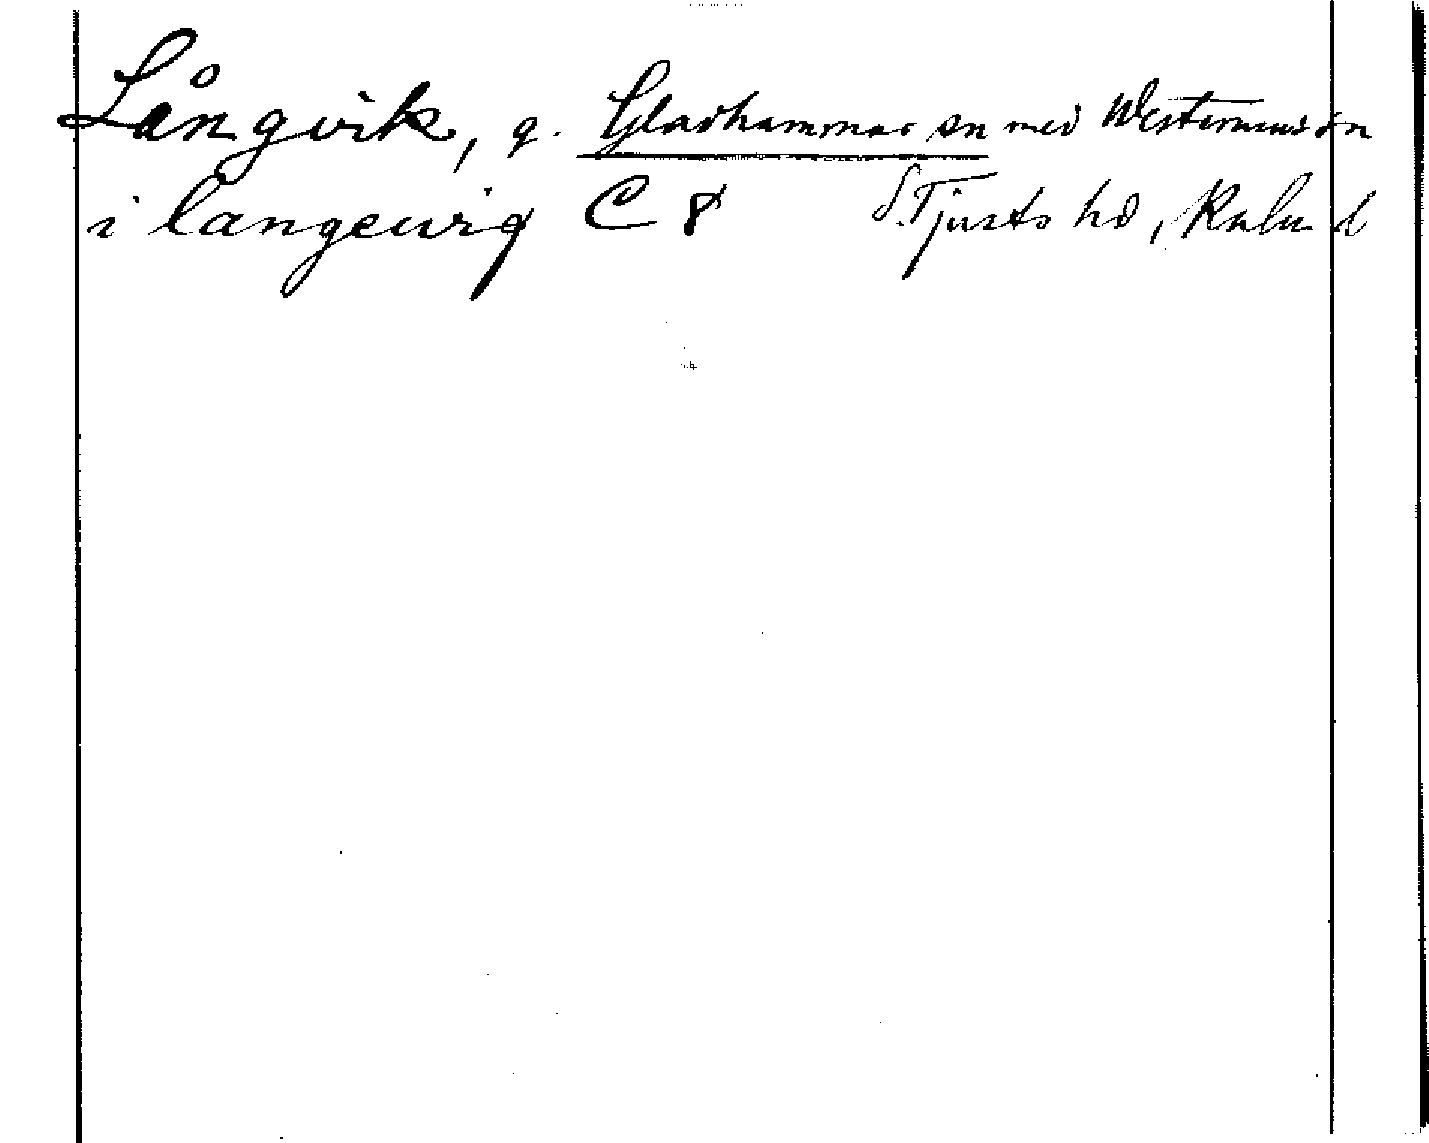 Långvik, g. Gladhammar sn med Westerviks sn
i langewig C 8 S. Tjusts hd, Kalm. l